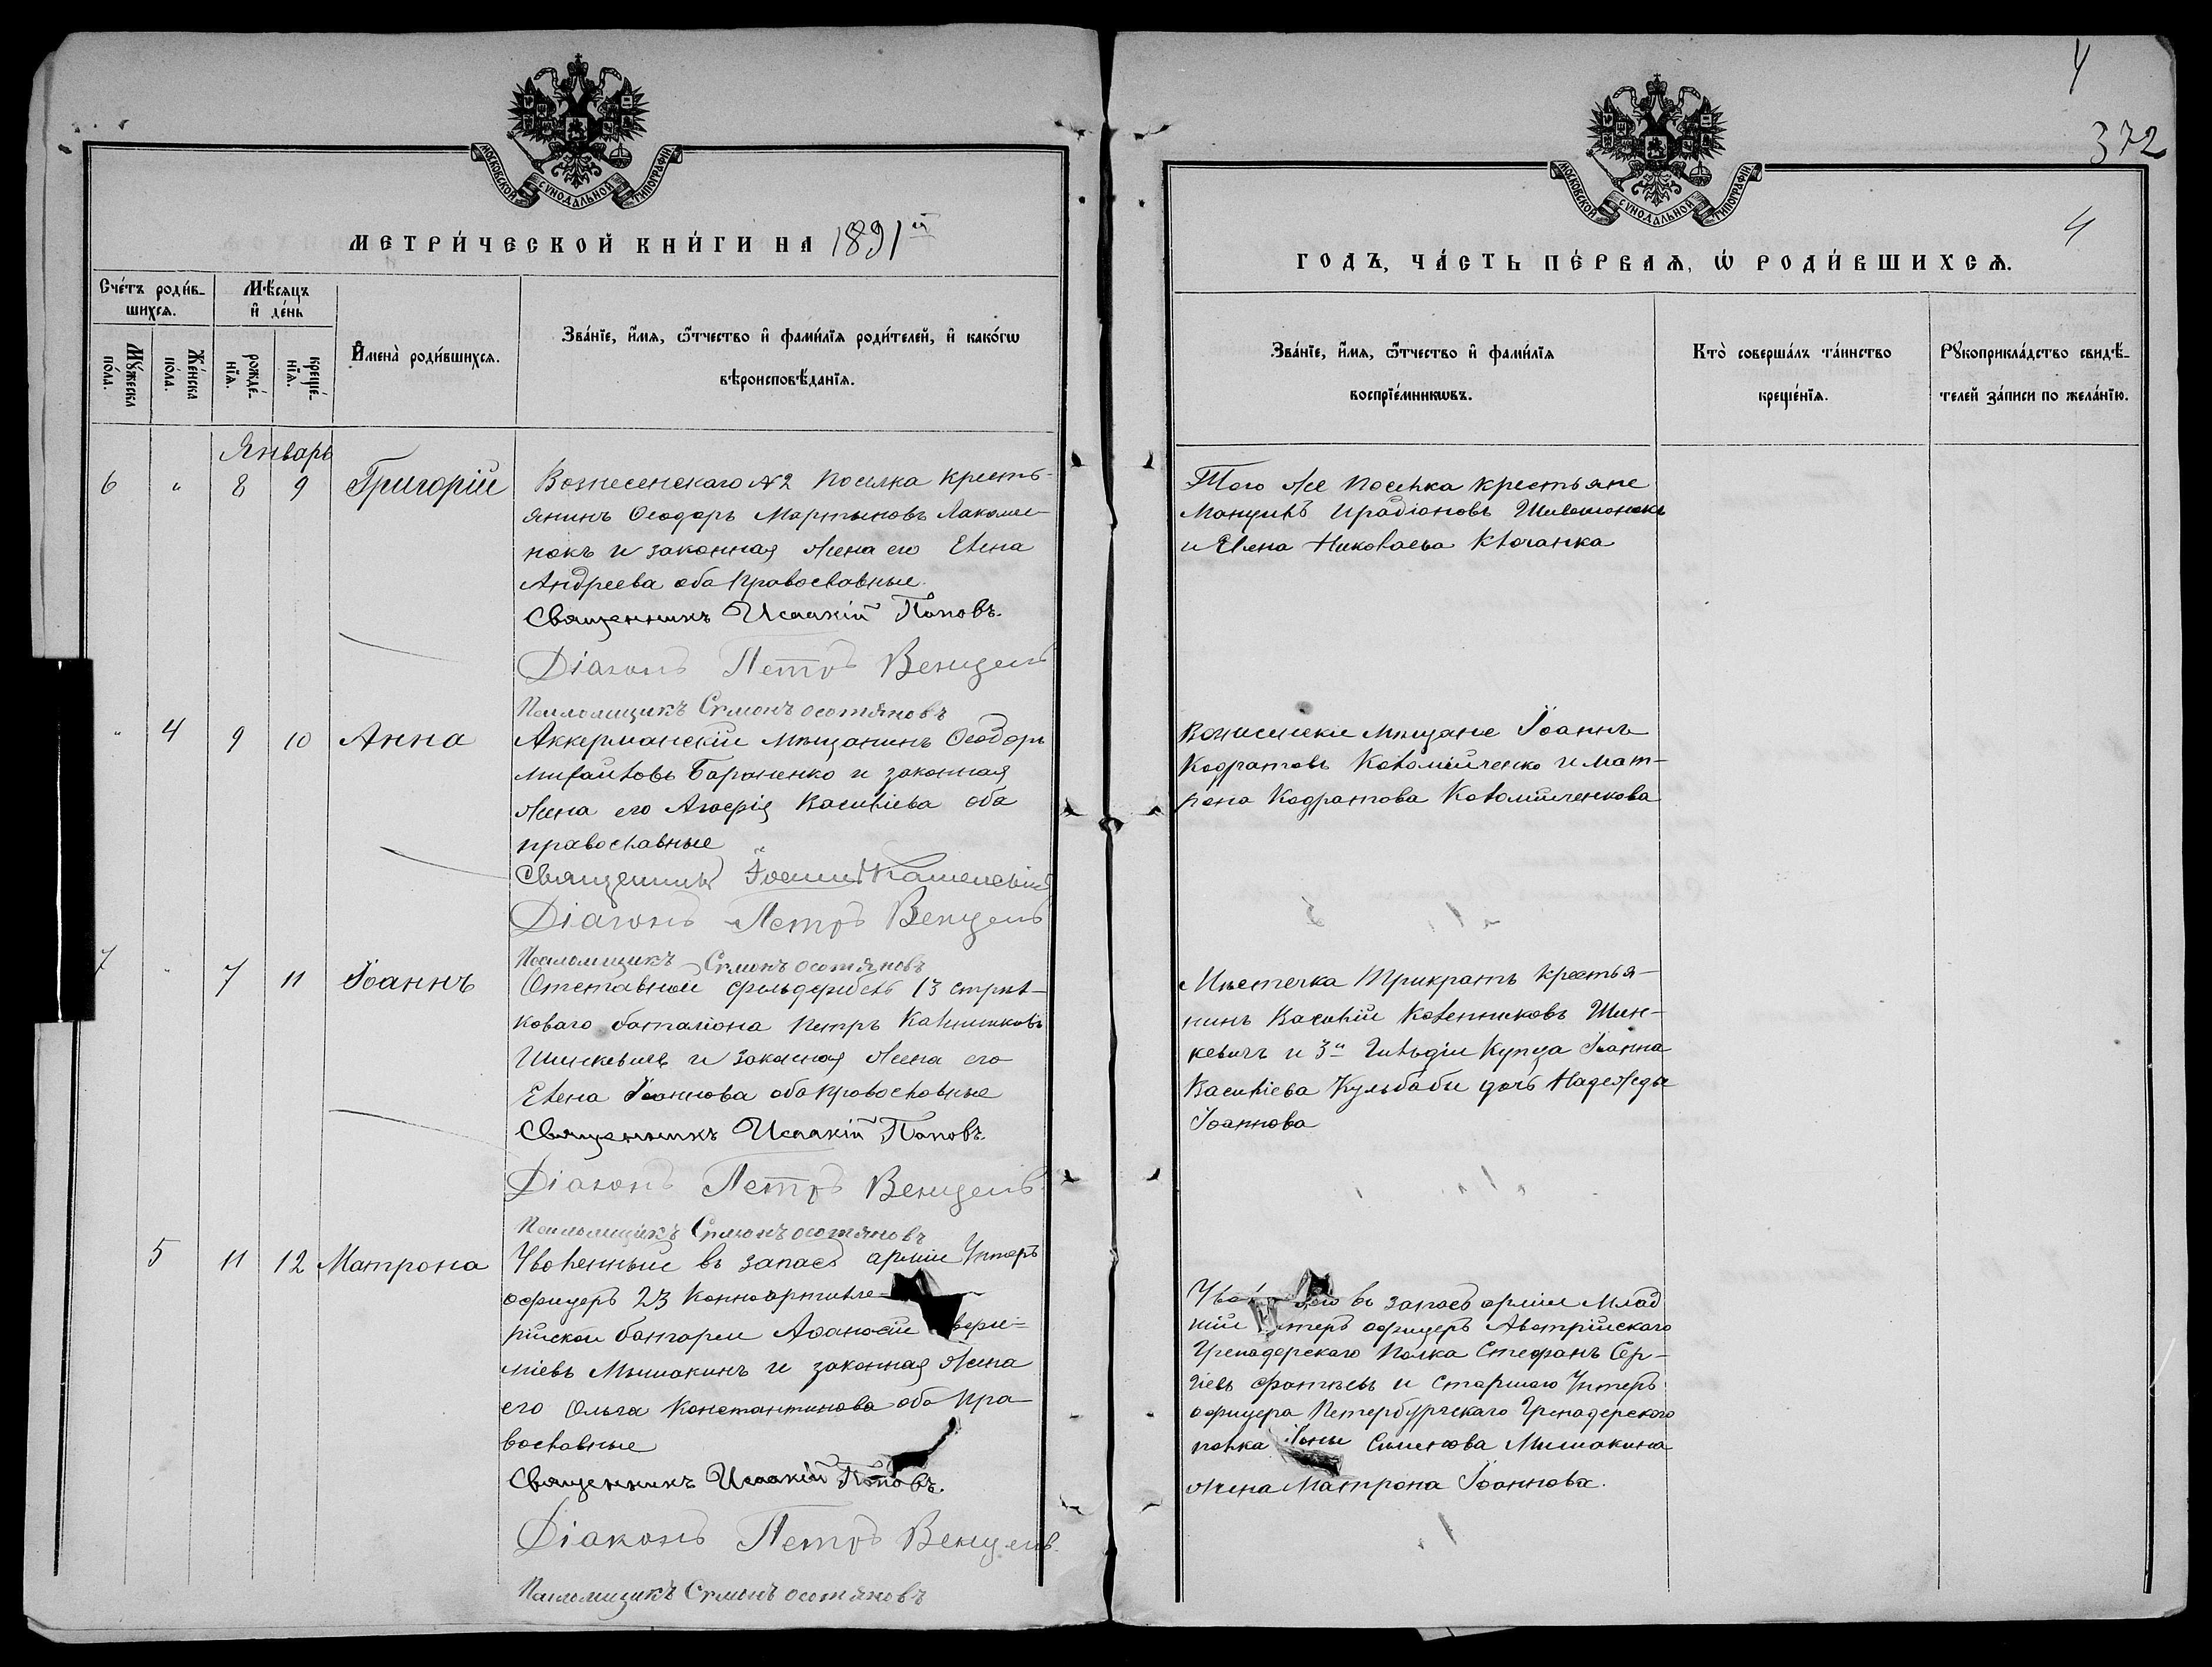 МОСКОВСКОЙ СУНОДАЛЬНОЙ ТИПОГРАФІИ
МЕТРИ́ЧЕСКОЙ КНИ́ГИ НА 1891й
Сче́тъ роди́в-
шихсѧ.
Мѣ́сѧцъ
и҆ де́нь
Мꙋ́жеска
по́ла.
Же́нска
по́ла.
рожде́-
нїѧ.
креще́-
нїѧ.
И҆мена̀ роди́вшихсѧ.
Зва́нїе, и҆́мѧ, ѻ҆́тчество и҆ фами́лїѧ роди́телей, и҆ како́гѡ
вѣроисповѣ́данїѧ.
Январь
6 " 8 9 Григорій
Вознесенскаго №2 поселка кресть-
янинъ Ѳеодоръ Мартыновъ Лакоме-
нокъ и законная жена его Елена
Андреева оба православные.
Священникъ Исаакій Поповъ.
Діаконъ Петръ Венцель
Псаломщикъ Сумонъ
" 4 9 10 Анна
Аккерманскій мѣщанинъ Ѳеодоръ
Михайловъ Бароненко и законная
жена его Васильева оба
православные
Священникъ Іоаннъ Каменскій
Діаконъ Петръ Венцель
Псаломщикъ Сумонъ
7 " 7 11 Іоаннъ
Отставной фельдфебель 13 стрѣл-
коваго баталіона Петръ Калинниковъ
Шинкевичъ и законная жена его
Елена Іоаннова оба православные
Священникъ Исаакій Поповъ.
Діаконъ Петръ Венцель
Псаломщикъ Сумонъ
5 11 12 Матрона
Уволенный въ запасъ арміи Унтеръ
офицеръ 23 Конноартилле-
рійской батареи Аѳанасій
міевъ Мышакинъ и законная жена
его Ольга Константинова оба пра-
вославные
Священникъ Исаакій Поповъ.
Діаконъ Петръ Венцель
Псаломщикъ Сумонъ
4
372
МОСКОВСКОЙ СУНОДАЛЬНОЙ ТИПОГРАФІИ
4
ГОДЪ, ЧА́СТЬ ПЕ́РВАѦ, Ѡ҆ РОДИ́ВШИХСѦ.
Зва́нїе, и҆́мѧ, ѻ҆́тчество и҆ фами́лїѧ
воспрїе́мникѡвъ.
Кто̀ соверша́лъ та́инство
креще́нїѧ.
Рꙋкоприкла́дство свидѣ́-
телей за́писи по жела́нїю.
Того же поселка крестьяне
Мануилъ Ирадіоновъ
и Елена Николаева Клочанка
Вознесенскіе мѣщане Іоаннъ
Кодратовъ Коломійченко и Мат-
рона Кодратова Коломійченкова
Мѣстечка Трикратъ крестья-
нинъ Василій Коленниковъ Шин-
кевичъ и 3й Гильдіи Купца Іоанна
Васильева Кульбаби дочь Надежда
Іоаннова
въ запасъ арміи Млад
шій Унтеръ офицеръ Австрійскаго
Гренадерскаго Полка Стефанъ Сер-
гіевъ и старшаго Унтеръ
офицера Петербургскаго Гренадерскаго
полка Симеонова Мишакина
жена Матрона Іоаннова.